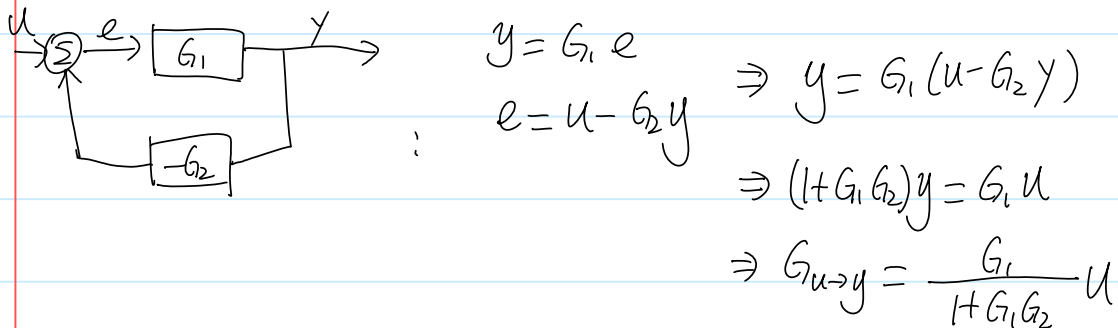 u Σ e G₁ y
-G₂
y = G₁ e
e = u - G₂ y
⇒ y = G₁ (u - G₂ y)
⇒ (1 + G₁ G₂) y = G₁ u
⇒ G_{u→y} = \frac{G₁}{1 + G₁ G₂} u